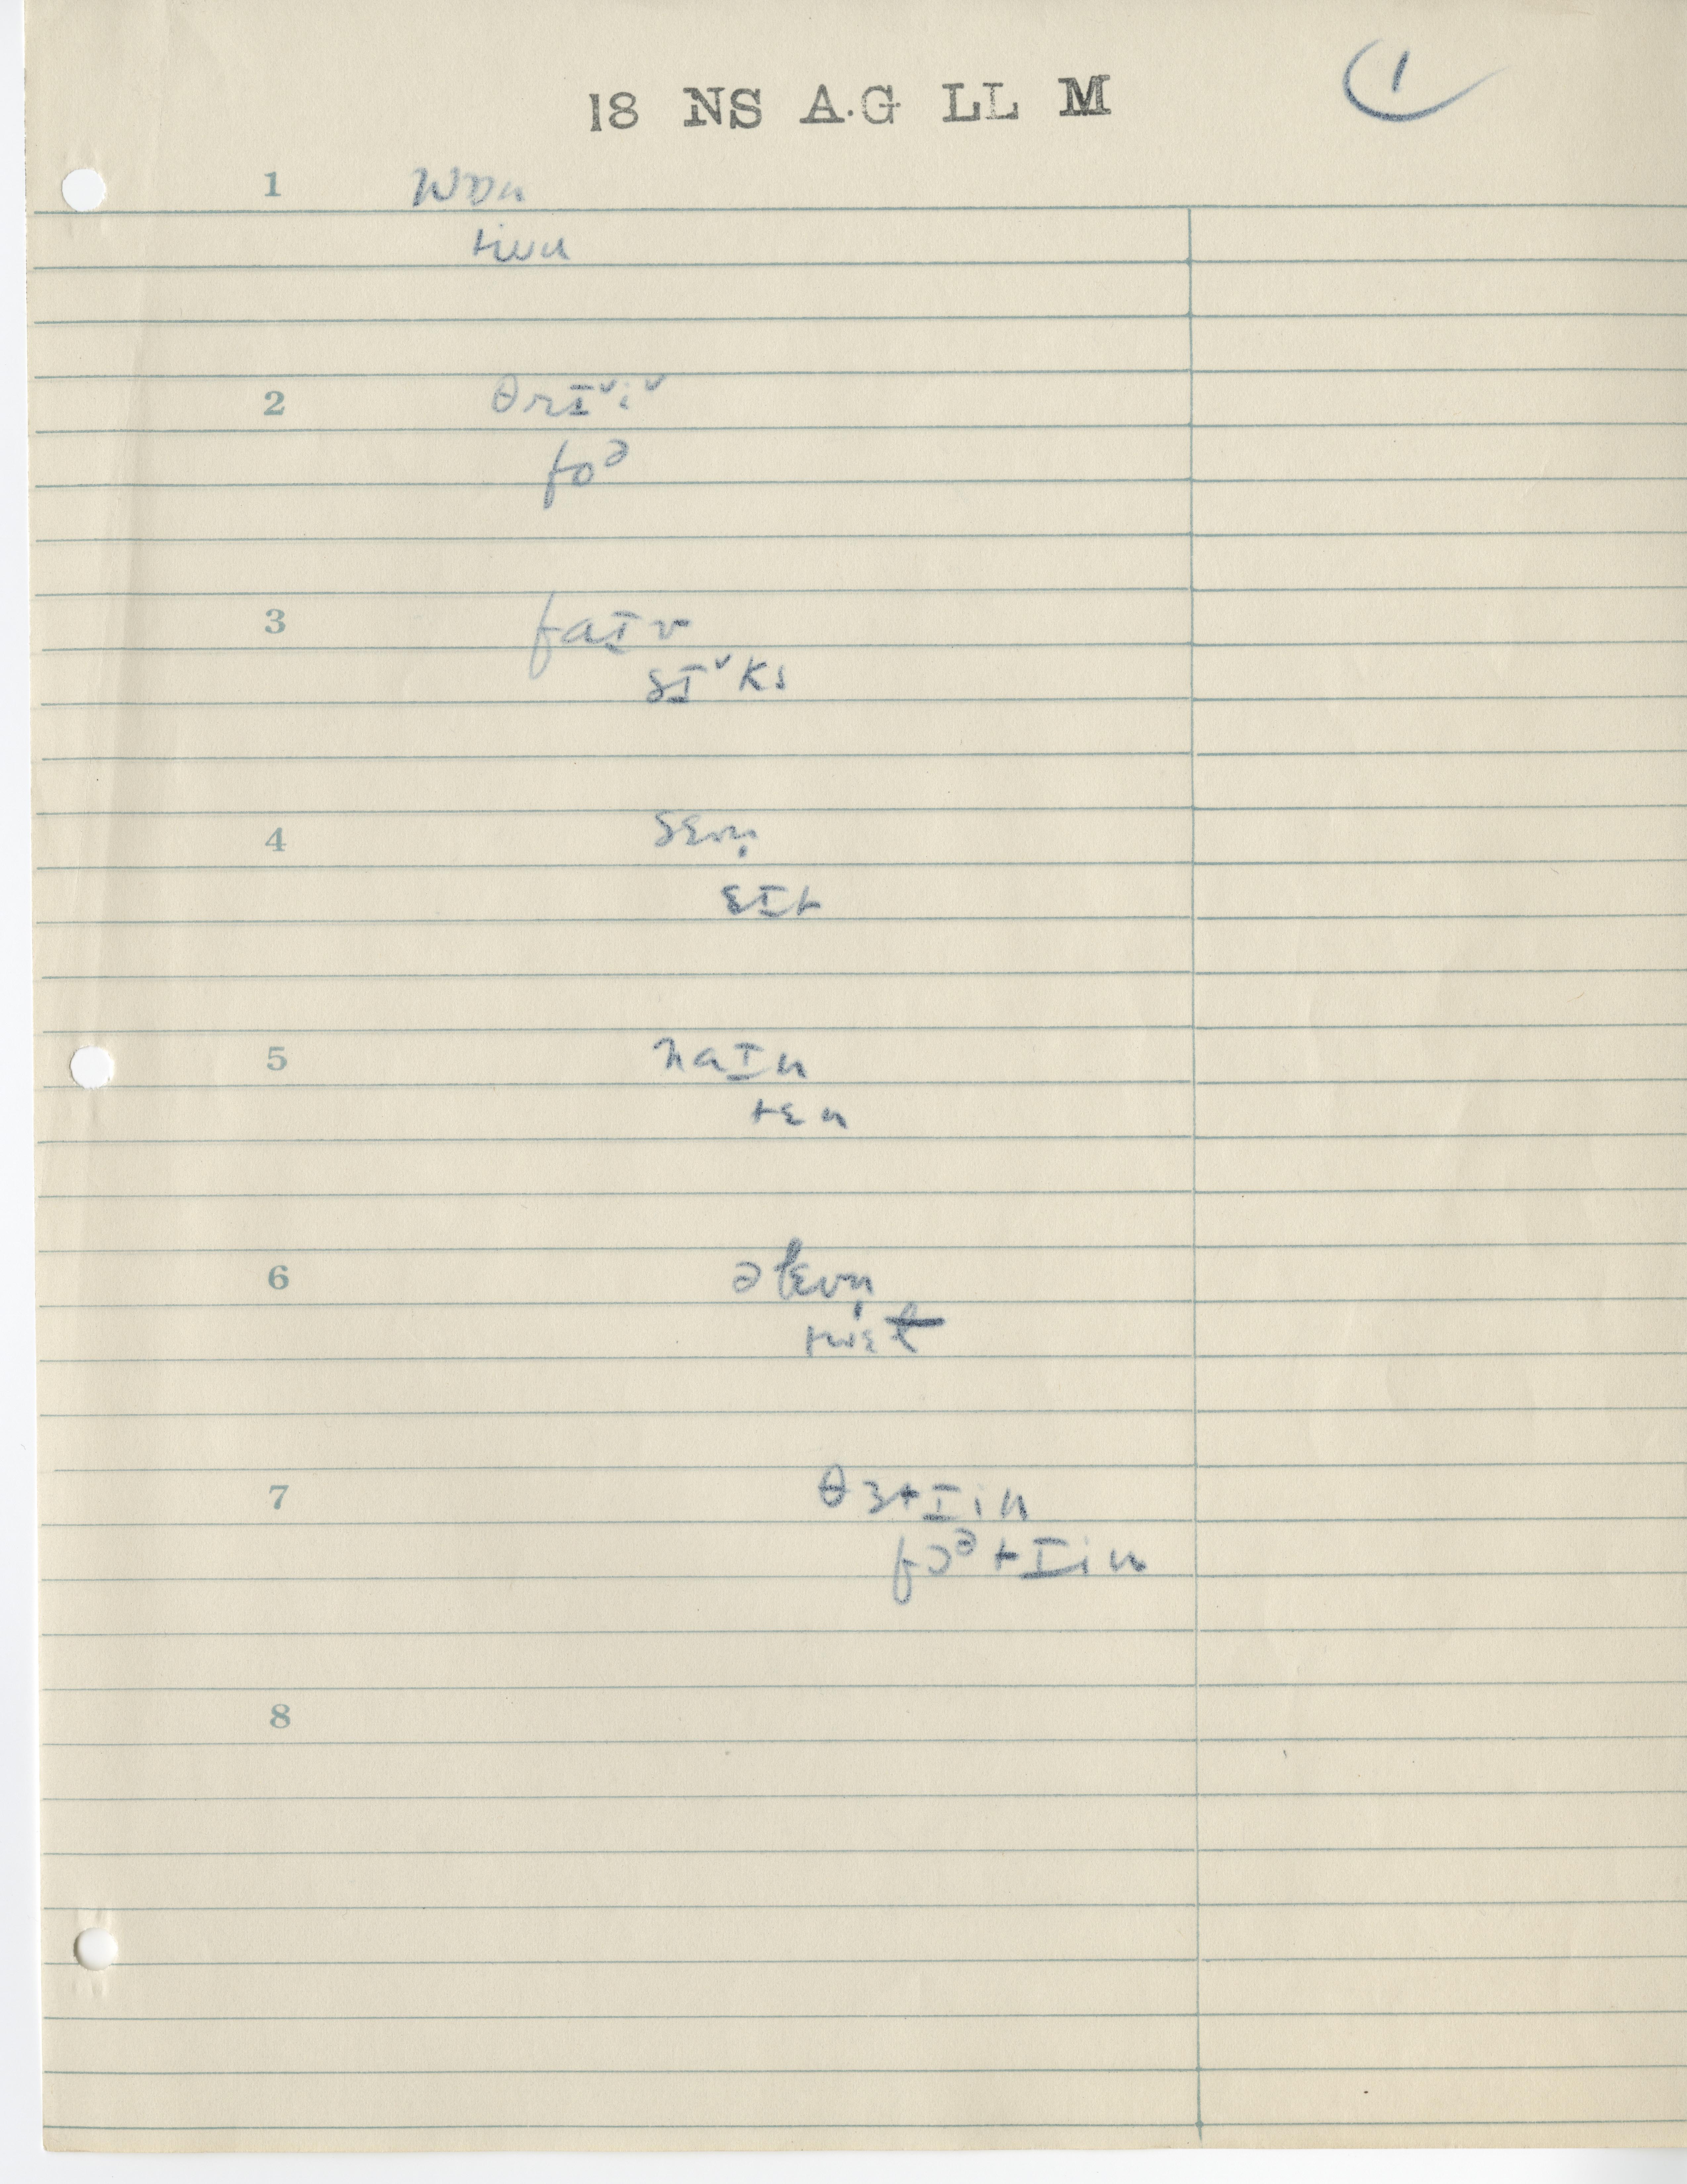 18 NS A.G LL M
1
1 wɒn
tɪʉu
2 θrɪ˅i˅
fɒᵊ
3 faɪv
sɪ˅ks
4 sɛvn̩
ɛɪt
5 naɪn
tɛn
6 əlɛvn̩
twɛɫ
7 θɜtɪin
fɔᵊtɪin
8